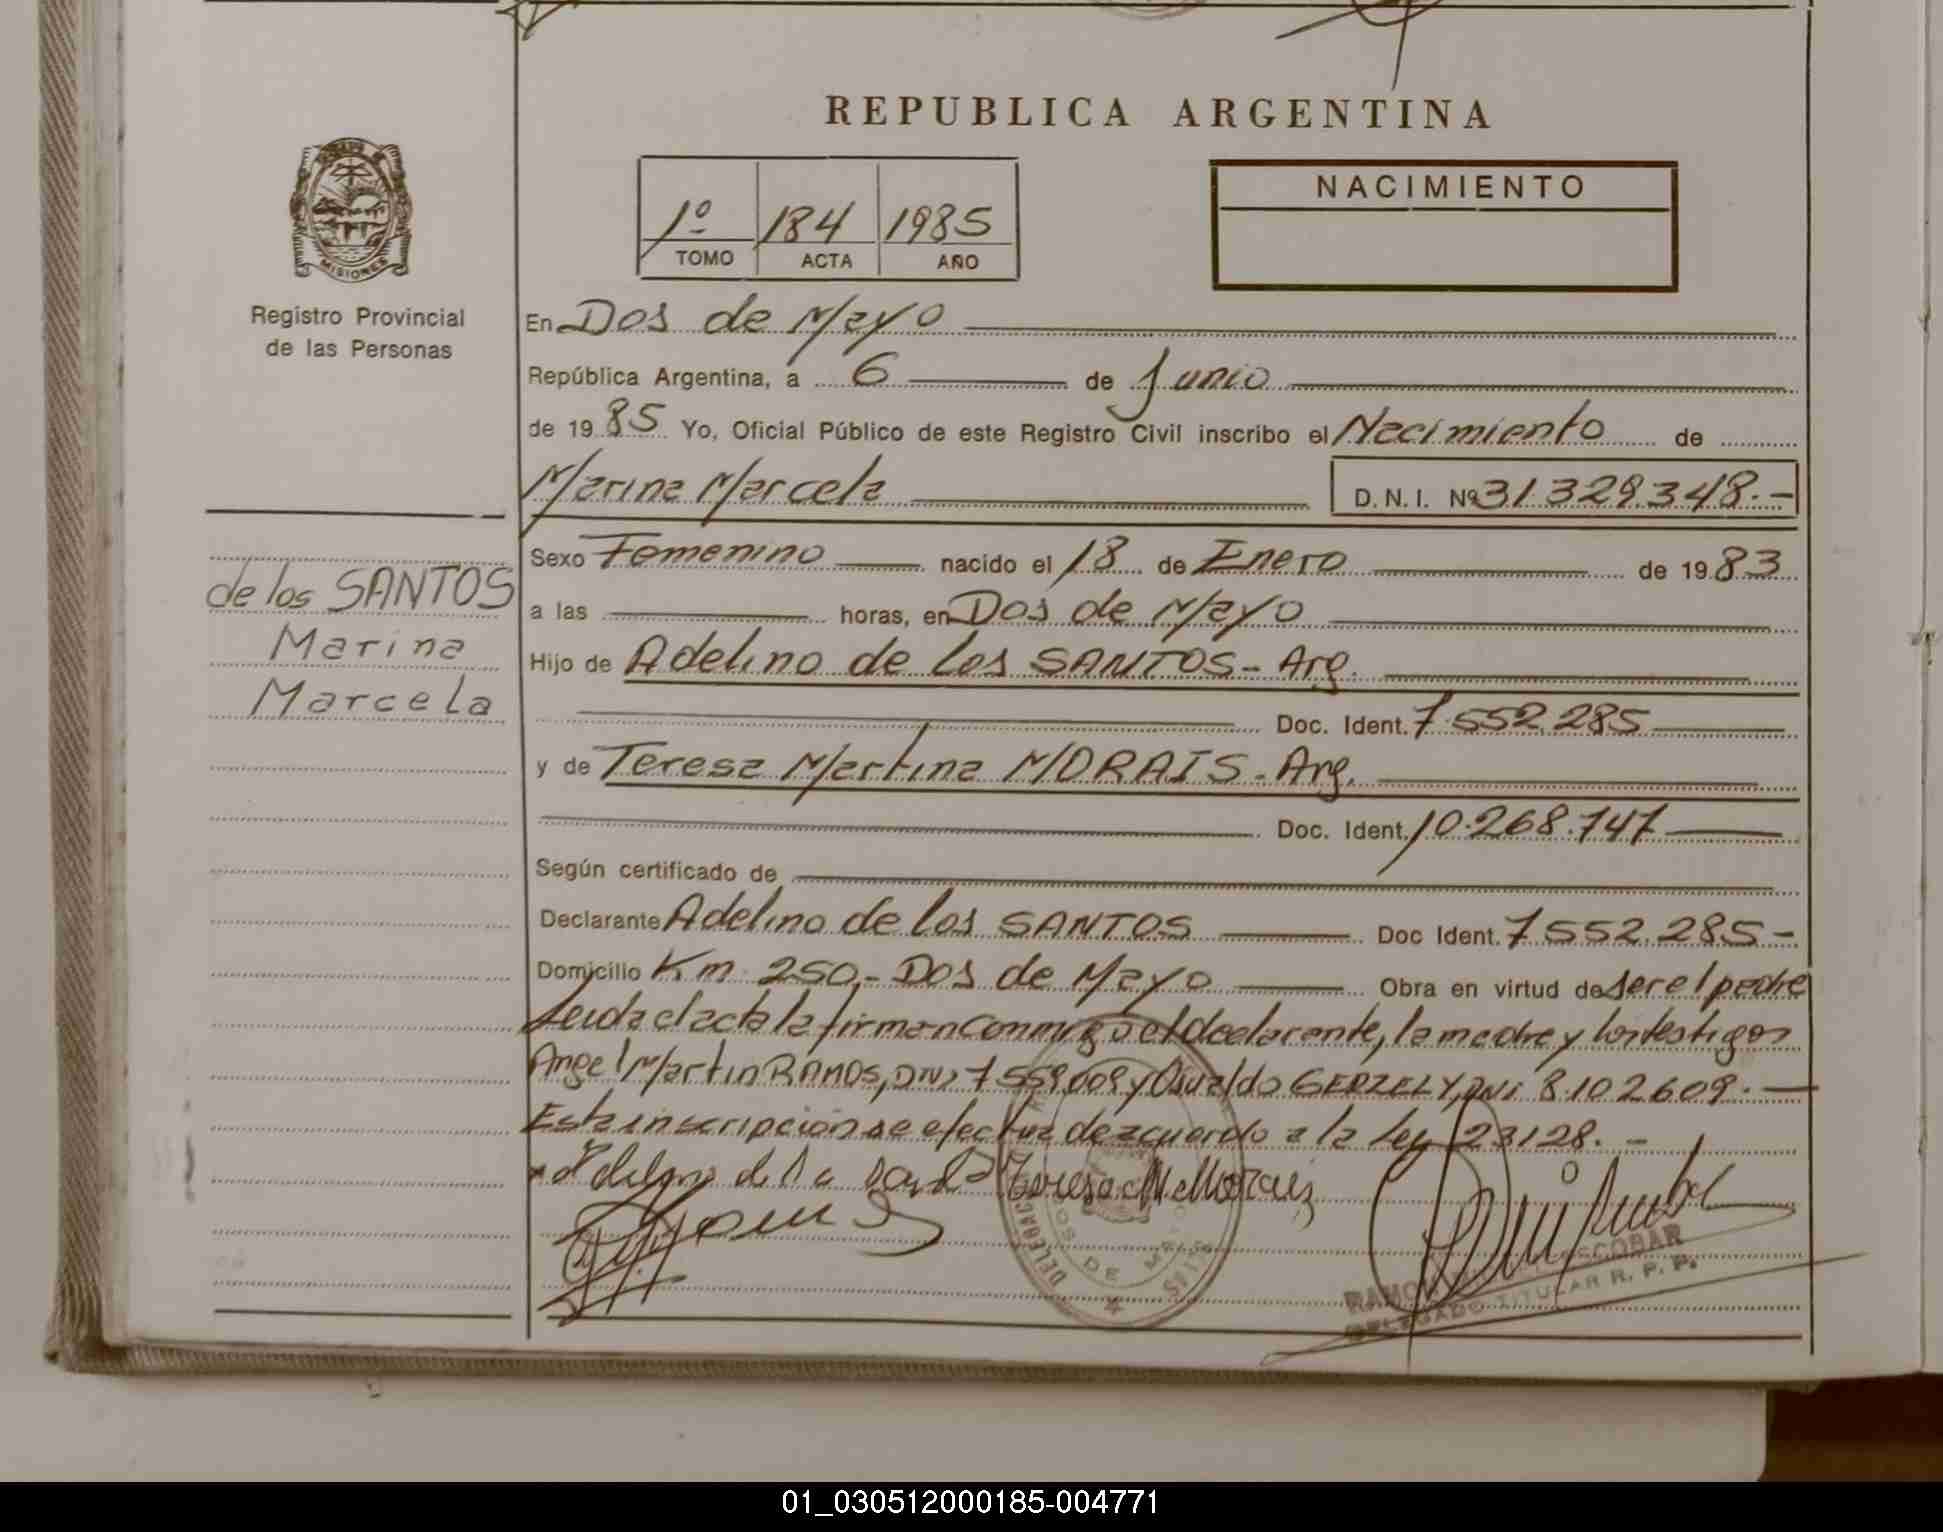 REPUBLICA ARGENTINA
1º 184 1985
TOMO ACTA AÑO
NACIMIENTO
MISIONES
Registro Provincial
de las Personas
En Dos de Mayo
República Argentina, a 6 de Junio
de 1985 Yo, Oficial Público de este Registro Civil inscribo el Nacimiento de
Marina Marcela D.N.I. Nº 31.329.348.-
Sexo Femenino nacido el 18 de Enero de 1983
de los SANTOS
Marina
Marcela
a las horas, en Dos de Mayo
Hijo de Adelino de los SANTOS - Arg.
Doc. Ident. 7.552.285
y de Teresa Martina MORAIS - Arg.
Doc. Ident. 10.268.747
Según certificado de
Declarante Adelino de los SANTOS Doc Ident. 7.552.285-
Domicilio Km. 250.- Dos de Mayo Obra en virtud de ser el padre
Leida el acta la firman conmigo el declarante, la madre y los testigos
Angel Martin RAMOS, DNI 7.559.009 y Osvaldo GERZELY, DNI 8.102.609.-
Esta inscripción se efectua de acuerdo a la Ley 23.128.-
Teresa M Morais
DOS DE MAYO
RAMON ESCOBAR
DELEGADO TITULAR R. P. P.
01_030512000185-004771